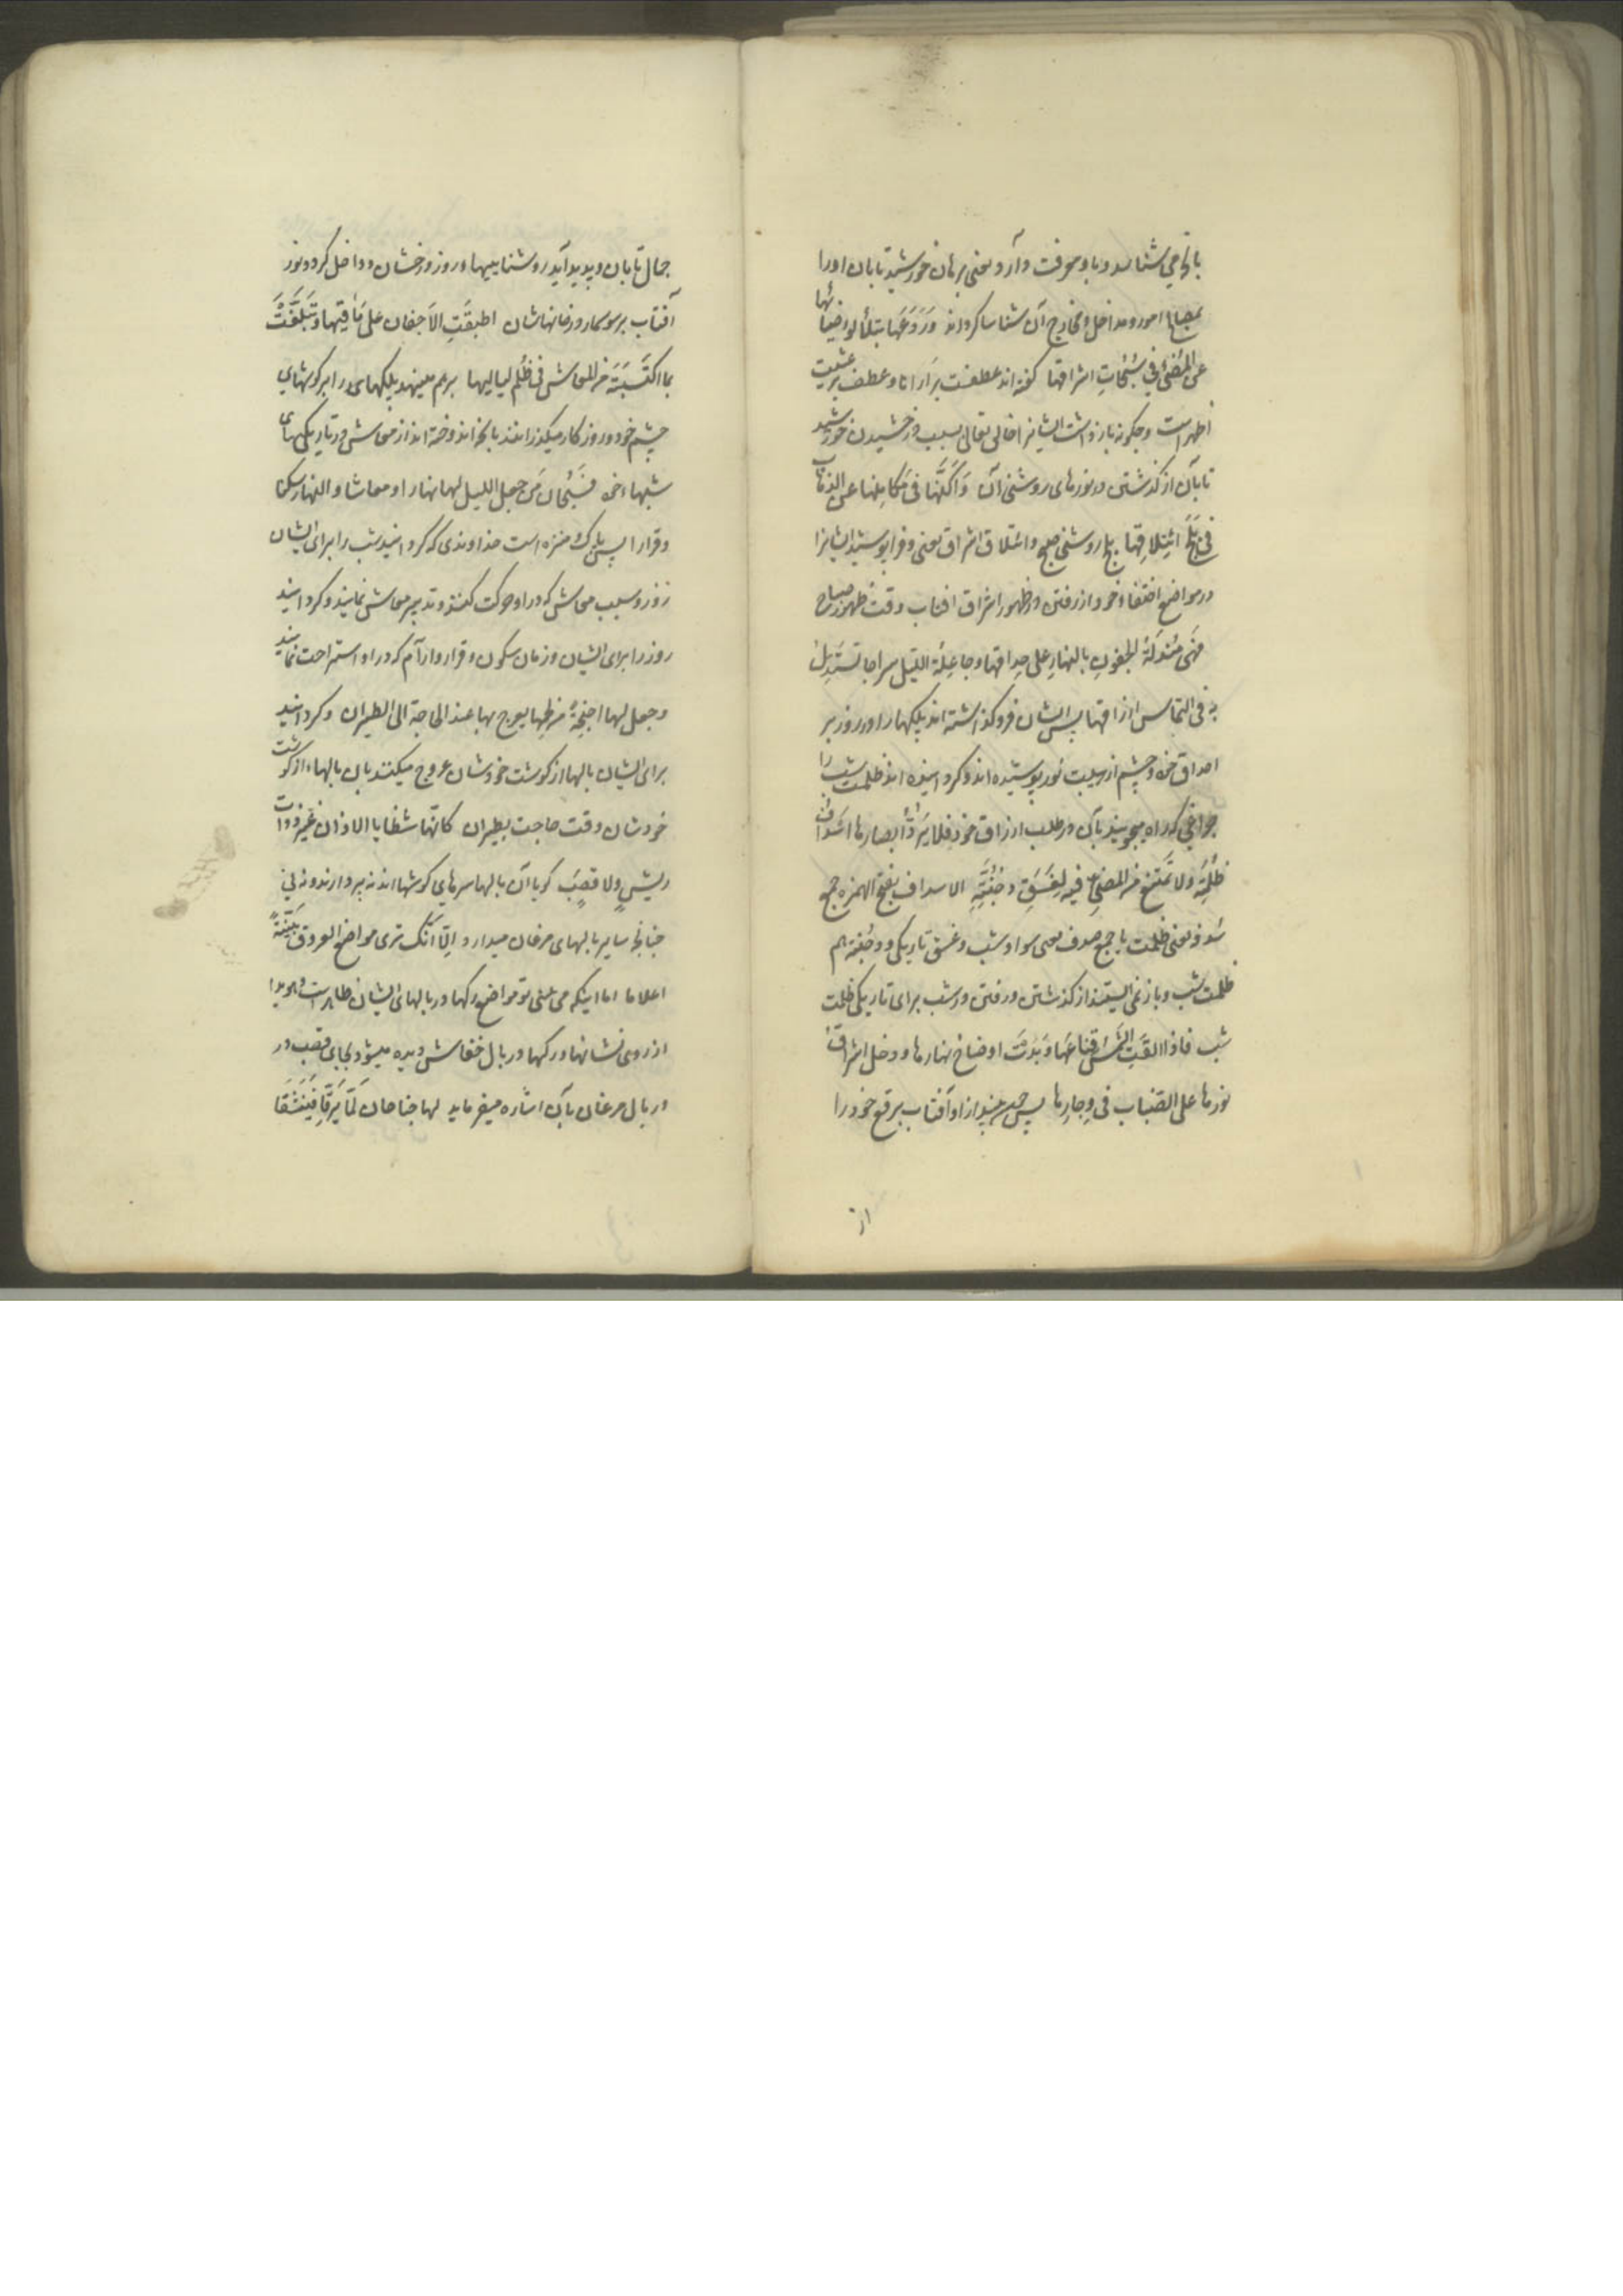 بانچه می شناسد و با و معرفت دارد و یعنی برهان خورشید تابان او را
بمصالح امور و مداخل و مخارج آن شناسا کرداند وَرَدَعَهَا بتلألؤ ضیائها
عن المُضیّ فی سُبُحاتِ اشراقها کفته اند عطفست بر اَرانا و عطف بر عشیت
اظهر است و چکونه بازداشت ایشانرا خالی تعالی بسبب درخشیدن خورشید
تابان از کذشتن در نورهای روشنی آن وَاَکَنَّهَا فی مَکامِنها عن الذهاب
فی بَلَجِ ائتِلاقِها بلج روشنی صبح و ائتلاق اشراق یعنی و فراپوشید ایشانرا
در مواضع اختفاء خود از رفتن در ظهور اشراق افتاب وقت ظهور صباح
فَهَی مُسْدَلَةُ الجفونِ بالنهارِ علی حِداقها و جاعِلة اللیل سراجا تَستَدِلّ
به فی التماس ارزاقها پس ایشان فروکذاشته اند پلکهارا در روز بر
احداق خود و چشم از سبب نور پوشیده اند و کردانیده اند ظلمت شب را
چراغی که راه میجویند بآن در طلب ارزاق خود فلا یَرُدُّ ابصارها اسدافُ
ظُلمَتِه ولا تَمتَنِعُ من المضیِّ فیه لِغَسَقِ دُجُنَّتِهِ الاسداف بفتح الهمزه جمع
سدف یعنی ظلمت یا جمع صدف یعنی سواد شب و غسق تاریکی و دجنه هم
ظلمت شب و بازنمی ایستند از کذشتن و رفتن در شب برای تاریکی ظلمت
شب فاذا القَتِ الشَمسُ قِناعَهَا وَبَدَت اوضاحُ نهارها و دخل اشراقُ
نورها علی الضِباب فی وِجارِها پس چون بیندازد آفتاب برقع خود را
از
جمال تابان و پدید آید روشناییها و روز درخشان و داخل کردد نور
آفتاب بر سوسمار در خانهاشان اطبقَتِ الاَجفان عَلی مَاٰقیها وَتَبَلَّغَتْ
بما اکتَسَبَتْه من المعاش فی ظُلَم لیالیها برهم مینهد پلکهای را بر کوشهای
چشم خود و روزکار میکذرانند بانچه اندوخته اند از معاش در تاریکیهای
شبهاء خود فسُبْحان مَن جعل اللیل لها نهارا و معاشا و النهار سکنا
و قرارا پس پاک و منزه است خداوندی که کردانید شب را برای ایشان
روز و سبب معاش که در او حرکت کنند و تدبیر معاش نمایند و کردانید
روز را برای ایشان و زمان سکون و قرار و آرام که در او استراحت نمایند
و جعل لها اجنِحَةً من لحمها یعرج بها عند الحاجة الی الطیران و کردانید
برای ایشان بالها از کوشت خودشان عروج میکنند بان بالهاء از کوشت
خودشان وقت حاجت بطیران کانّها شظایا الاذان غیر ذوات
ریشٍ ولا قصبٍ کویا آن بالها سرهای کوشها اند نه پر دارند و نه نی
چنانچه سایر بالهای مرغان میدارد اِلّا انّک تری مواضعَ العروق بَیِّنَةً
اعلاما اما اینکه می بینی تو مواضع رکها در بالهای ایشان ظاهر است و هویدا
از روی نشانها و رکها در بال خفاش دیده میشود بجای قصب در
در بال مرغان بآن اشاره میفرماید لها جناحان لَمّا یَرِقّا فَیَنشَقّا